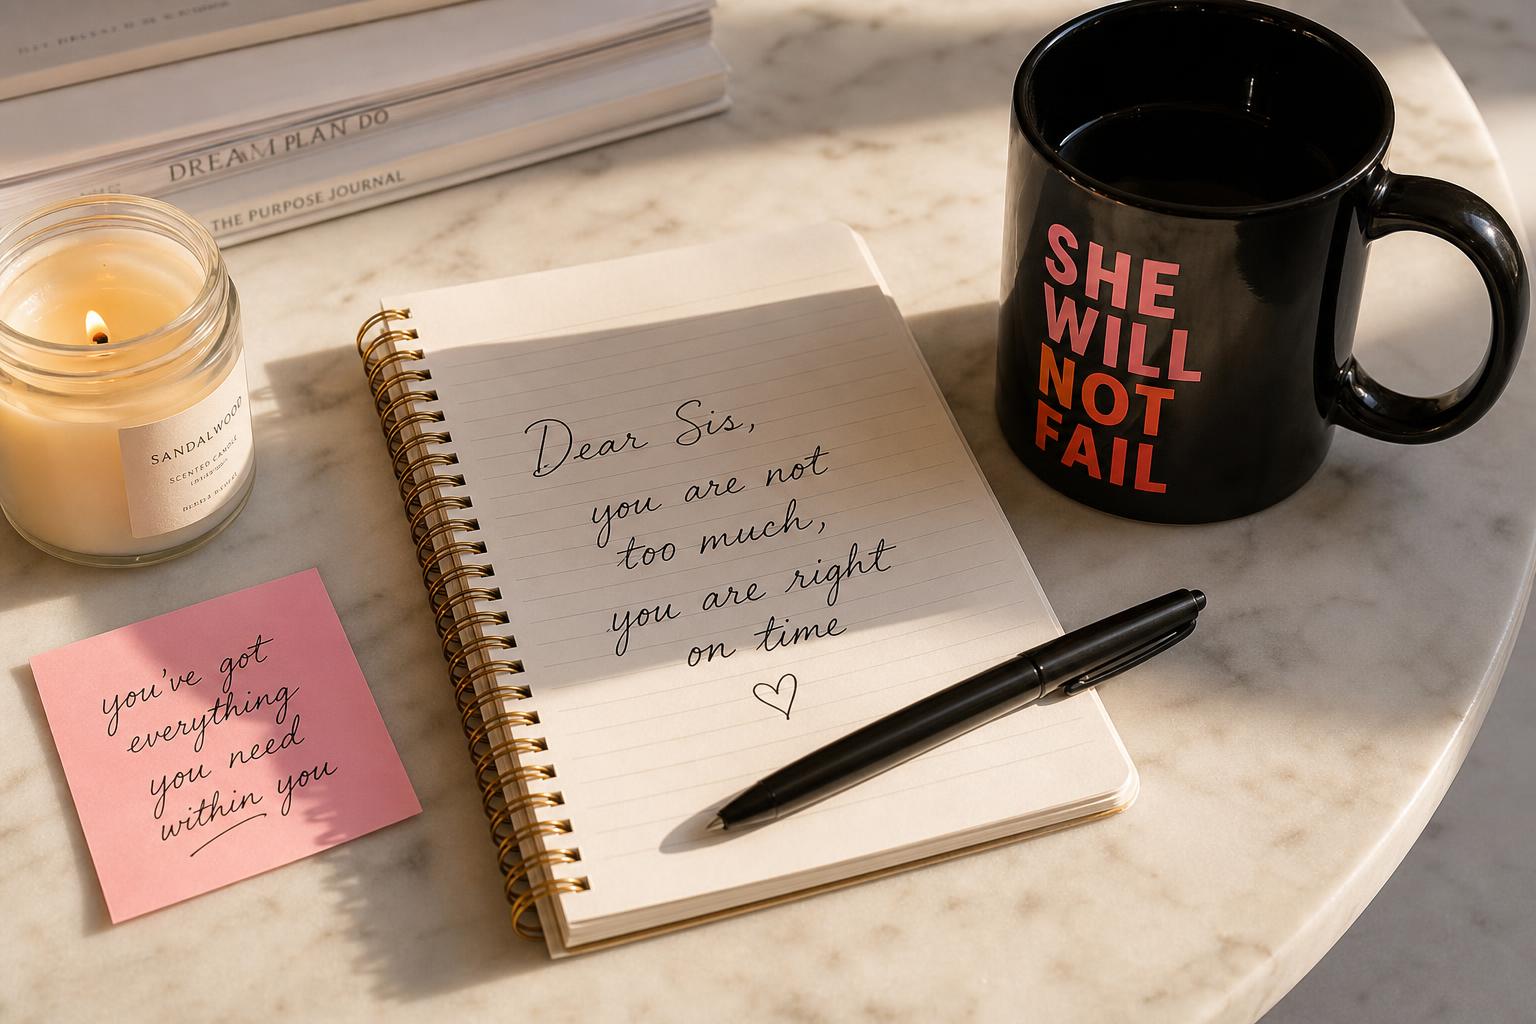 DREAM PLAN DO
THE PURPOSE JOURNAL
SANDALWOOD
SCENTED CANDLE
SHE
WILL
NOT
FAIL
Dear Sis,
you are not
too much,
you are right
on time
you've got
everything
you need
within you